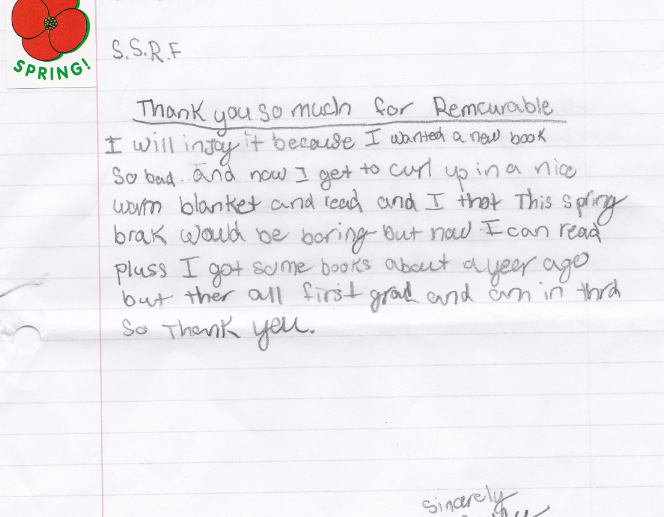 SPRING!
S.S.R.F
Thank you so much for Remcurable
I will injoy it because I wanted a new book
So bad. And now I get to curl up in a nice
warm blanket and read and I thot This spring
brak would be boring but now I can read
pluss I got some books about a year ago
but ther all first grad and am in thrd
So Thank you.
sincarely